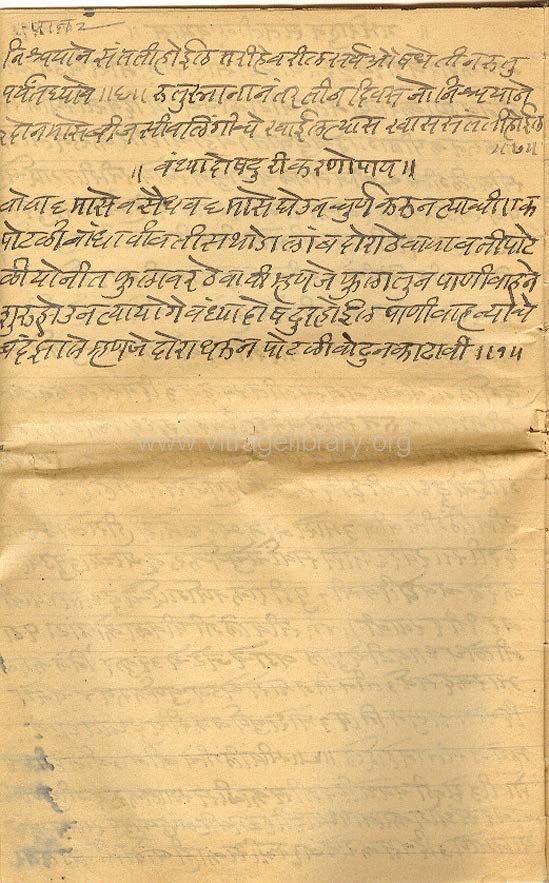 पान २
निश्चयाने संतती होईल तरी हे वरील सर्व औषधे तीन ऋतु
पर्यंत घ्यावे ॥ ६॥ ऋतुस्नानानंतर तीन दिवस जो निश्चयाने
दोन मासे बीज सीवलिंगीचे खाईल त्यास खास संतती होईल
॥७॥
॥ वंध्यादोषदुरीकरणोपाय॥
वोवा ६ मासे व सैंधव ६ मासे घेउन चुर्ण करुन त्याची एक
पोटळी बांधावी वतीस थोडा लांब दोरा ठेवावा व ती पोट
ळी योनीत फुलावर ठेवावी म्हणजे फुलातुन पाणी वाहने
शुरु होउन त्यायोगे वंध्यादोष दुर होईल पाणी वाहन्याचे
बंद झाले म्हणजे दोरा धरुन पोटळी वोढुन काढावी ॥१॥
www.vitragelibrary.org